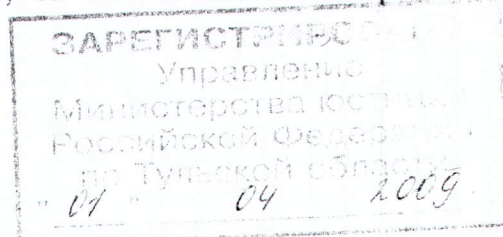 ЗАРЕГИСТРИРОВАНО
Управление
Министерства юстиции
Российской Федерации
по Тульской области
"01" 04 2009